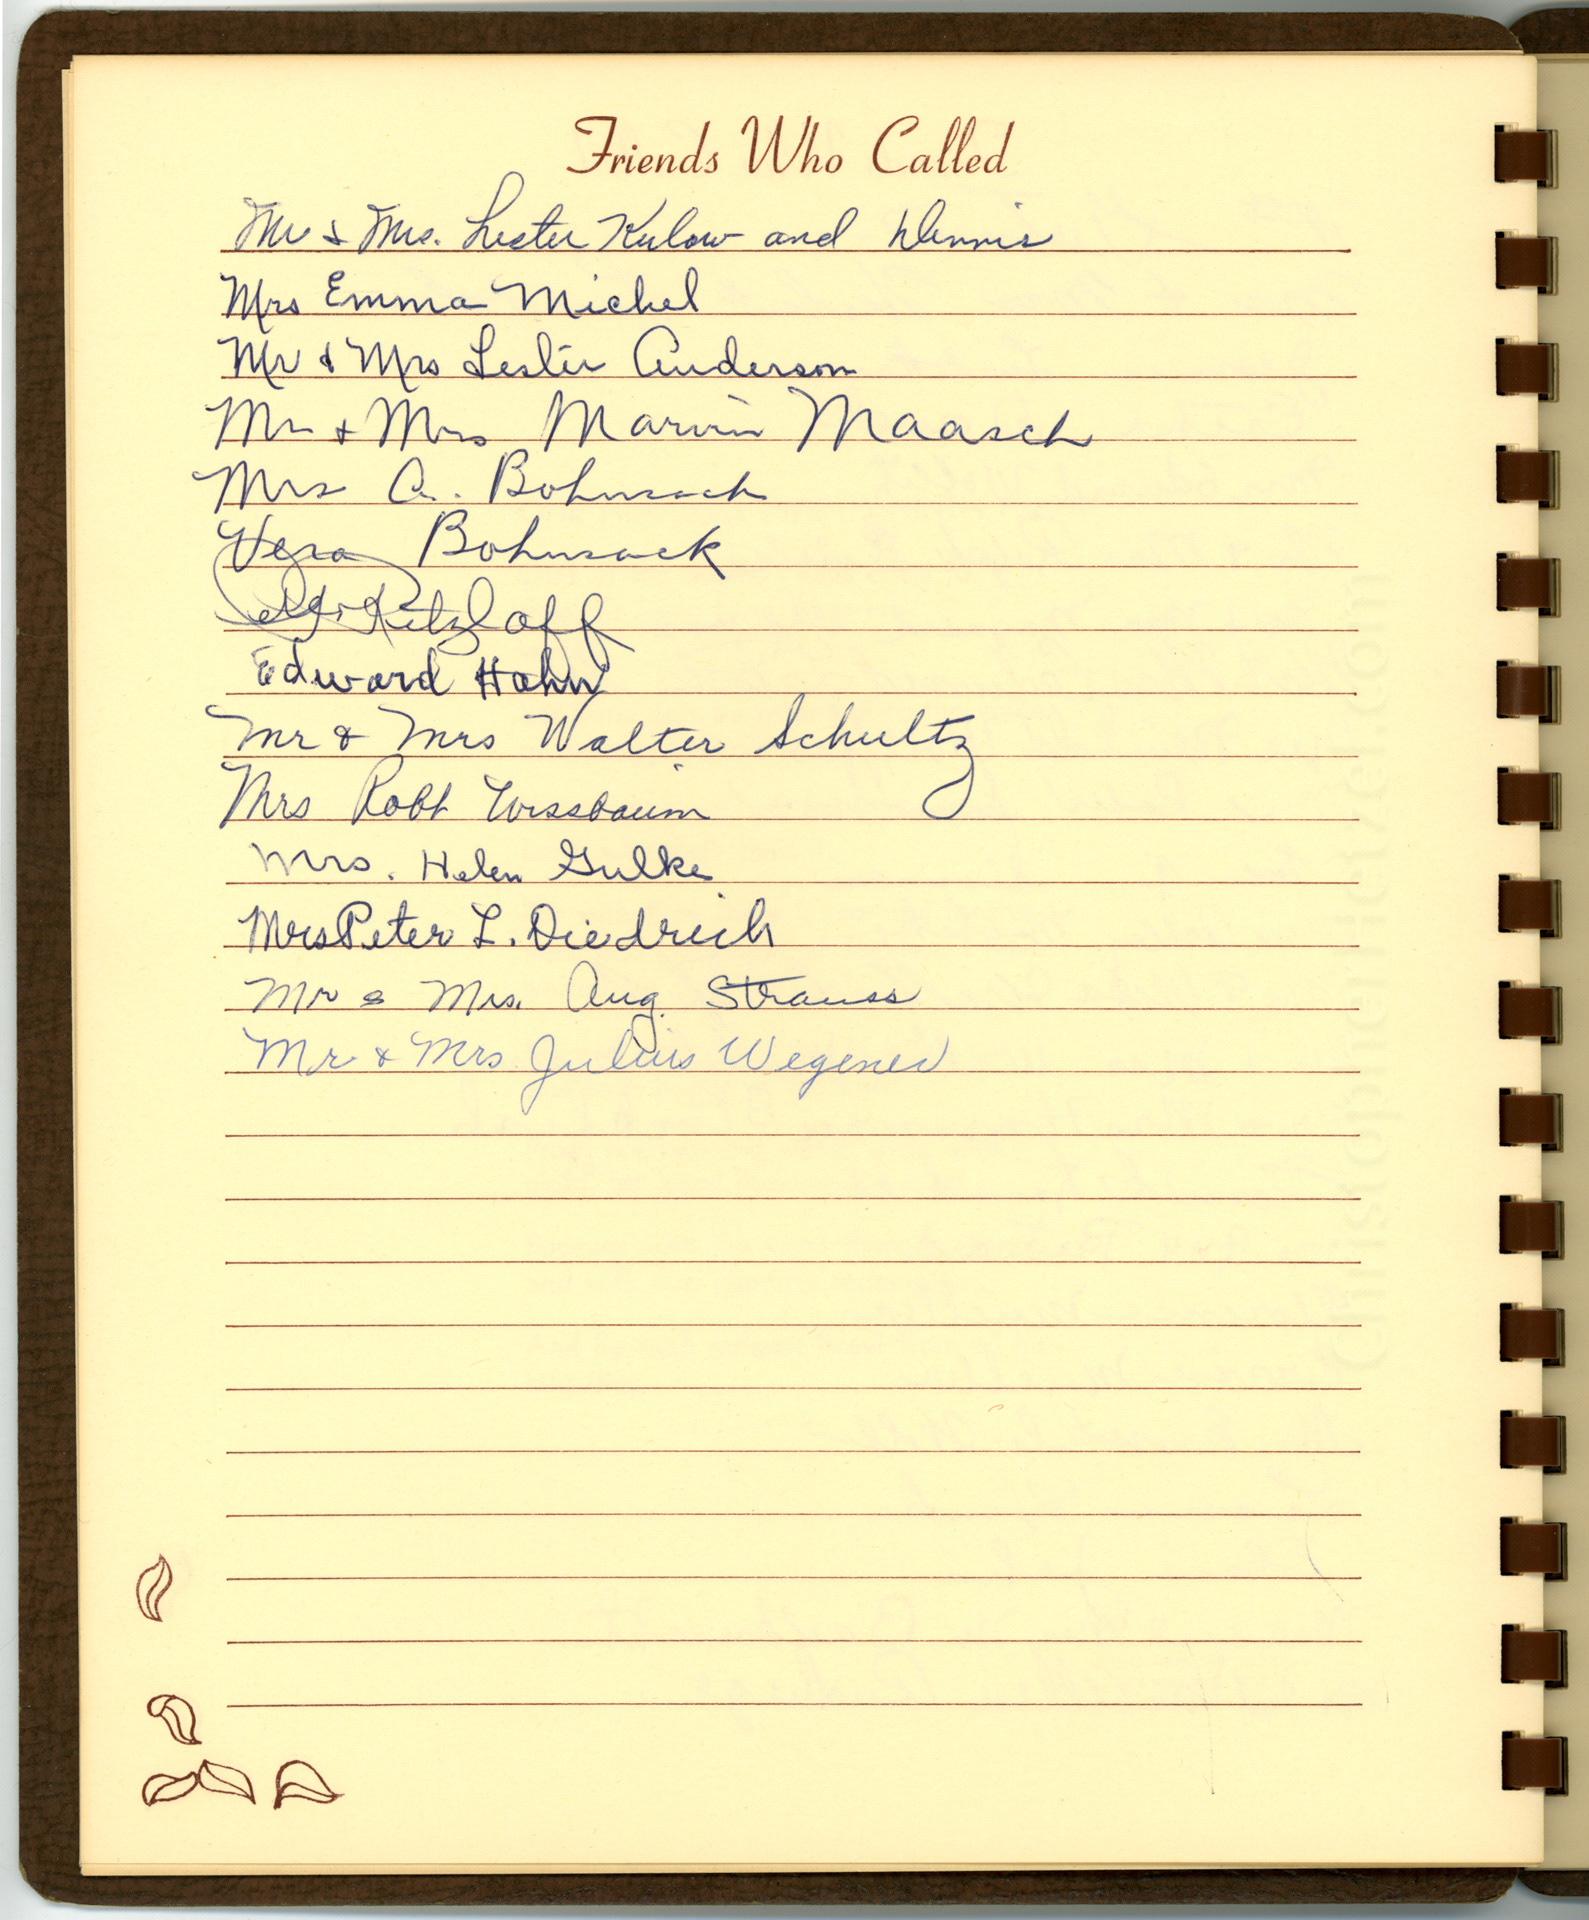 Friends Who Called
Mr & Mrs. Lester Kulow and Dennis
Mrs Emma Michel
Mr & Mrs Lester Anderson
Mr + Mrs Marvin Maasch
Mrs A. Bohnsack
Vera Bohnsack
Retzlaff
Edward Hahn
Mr & Mrs Walter Schultz
Mrs Robt
Mrs. Helen Gulke
Mrs Peter L. Diedrich
Mr & Mrs. Aug. Strauss
Mr & Mrs Julius Wegener